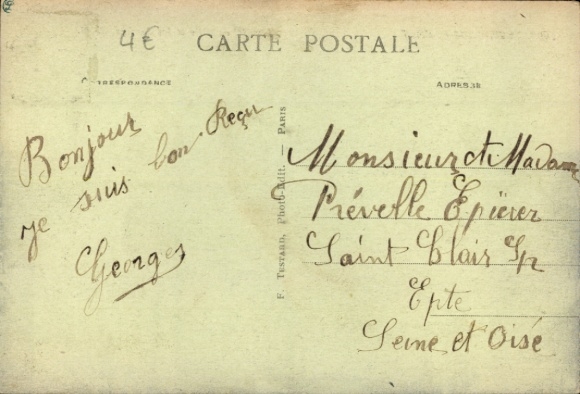 4€
CARTE POSTALE
CORRESPONDANCE
ADRESSE
Bonjour
je suis bon Reçu
Georges
F. TESTARD, Photo-Édit. — PARIS
Monsieur et Madame
Préville Epiërer
Saint Clair Sr
Epte
Seine et Oise